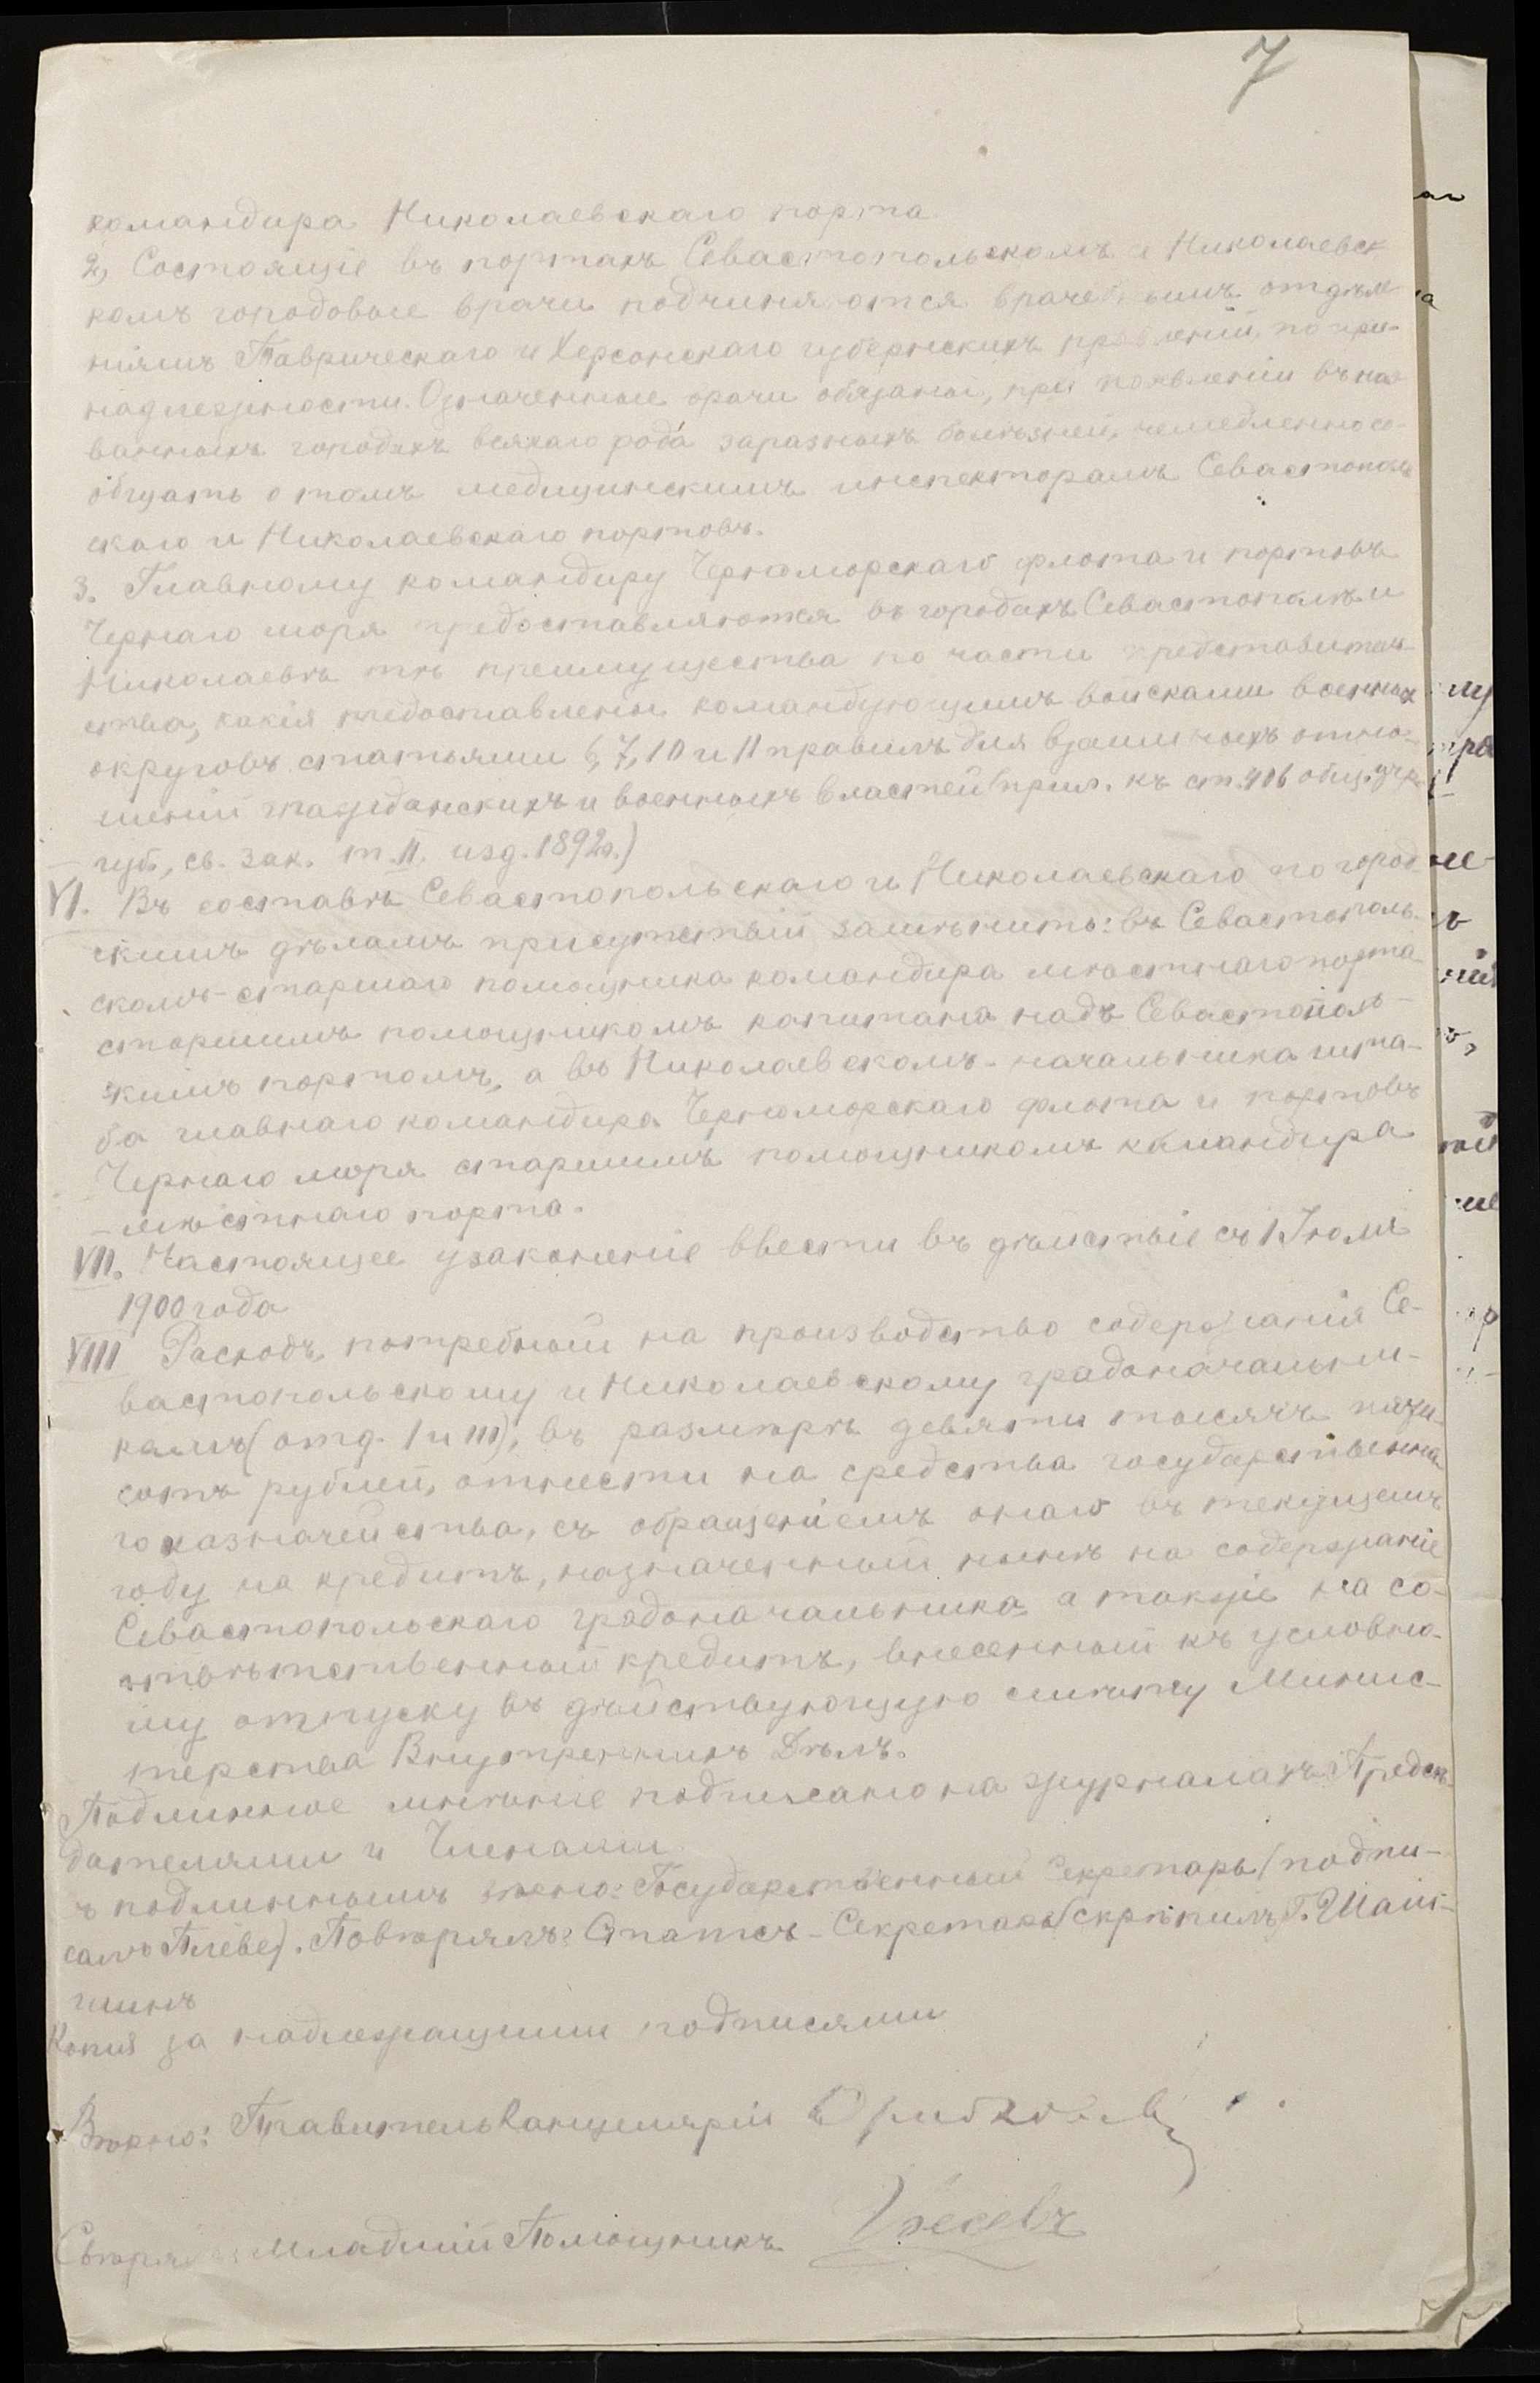 7
командира Николаевскаго порта
2, Состоящіе въ портахъ Севастопольскомъ и Николаевск
комъ городовые врачи подчиняются врачебнымъ отдѣле
ніямъ Таврическаго и Херсонскаго губернскихъ правленій, по при-
надлежности. Означенные врачи обязаны, при появленіи въ наз
ванныхъ городахъ всякаго рода заразныхъ болѣзней, немедленно со-
общать о томъ медицинскимъ инспекторамъ Севастополь
скаго и Николаевскаго портовъ.
3. Главному командиру Черноморскаго флота и портовъ
Чернаго моря предоставляются въ городахъ Севастополѣ и
Николаевѣ тѣ преимущества по части представитель
ства, какія предоставлены командующимъ войсками военных
округовъ статьями 6, 7, 10 и 11 правилъ для взаимныхъ отно-
шеній гражданскихъ и военныхъ властей (прил. къ ст. 406 общ. учр.
губ., св. зак. т. II. изд. 1892г.)
VI. Въ составѣ Севастопольскаго и Николаевскаго по город-
скимъ дѣламъ присутствій замѣнить: въ Севастополь-
скомъ-старшаго помощника командира мѣстнаго порта
старшимъ помощникомъ капитана надъ Севастополь-
скимъ портомъ, а въ Николаевскомъ- начальника шта-
ба главнаго командира Черноморскаго флота и портовъ
Чернаго моря старшимъ помощникомъ командира
мѣстнаго порта.
VII. Настоящее узаконеніе ввести въ дѣйствіе съ 1 Іюля
1900 года
VIII Расходъ, потребный на производство содержанія Се-
вастопольскому и Николаевскому градоначальни-
камъ (отд. I и III), въ размѣрѣ девяти тысячъ пяти-
сотъ рублей, отнести на средства государственна
го казначейства, съ обращеніемъ онаго въ текущемъ
году на кредитъ, назначенный нынѣ на содержаніе
Севастопольскаго градоначальника, а также на со-
отвѣтственный кредитъ, внесенный къ условно-
му отпуску въ дѣйствующую смѣту Минис-
терства Внутреннихъ Дѣлъ.
Подлинное мнѣніе подписано на журналахъ Предсѣ-
дателями и Членами.
ъ подлиннымъ вѣрно: Государственный Секретарь (подпи-
салъ Плеве). Повѣрялъ: Статсъ-Секретарь (скрѣпилъ) Г. Шам-
шинъ
Копія за надлежащими подписями
Вѣрно: Правитель Канцеляріи
Свѣрялъ: Младшій Помощникъ